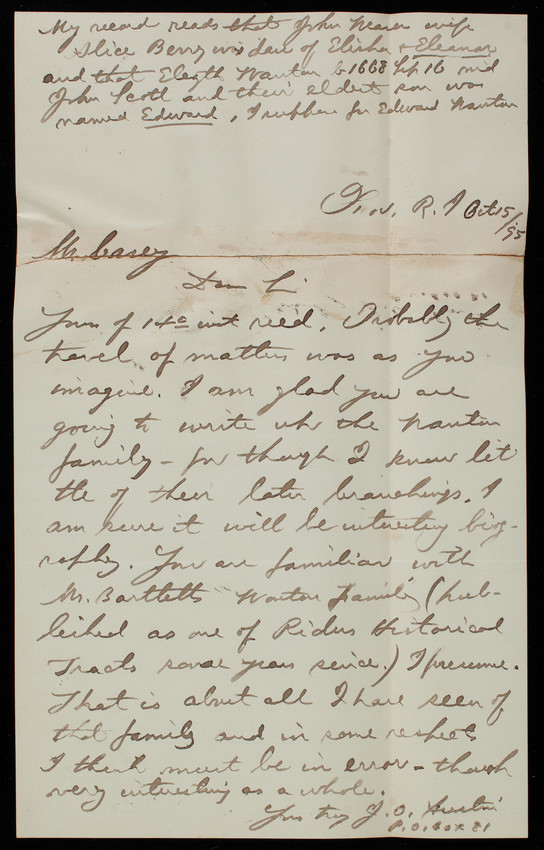 My record reads that John Weaver's wife
Alice Berry was dau of Elisha & Eleanor
and that Elizth Wanton b 1668 Sep 16 md
John Scott and their eldest son was
named Edward, I suppose for Edward Wanton
Prov. R. I Oct 15/95
Mr. Casey
Dear Sir
Yours of 14th inst rec'd. Probably the
travel of matters was as you
imagine. I am glad you are
going to write up the Wanton
family - for though I know lit
tle of their later branchings, I
am sure it will be interesting biog-
raphy. You are familiar with
Mr. Bartletts Wanton Family (pub-
lished as one of Riders Historical
Tracts some years since.) I presume.
That is about all I have seen of
that family and in some respects
I think must be in error - though
very interesting as a whole.
Yours truly J. O. Austin
P.O. Box 81